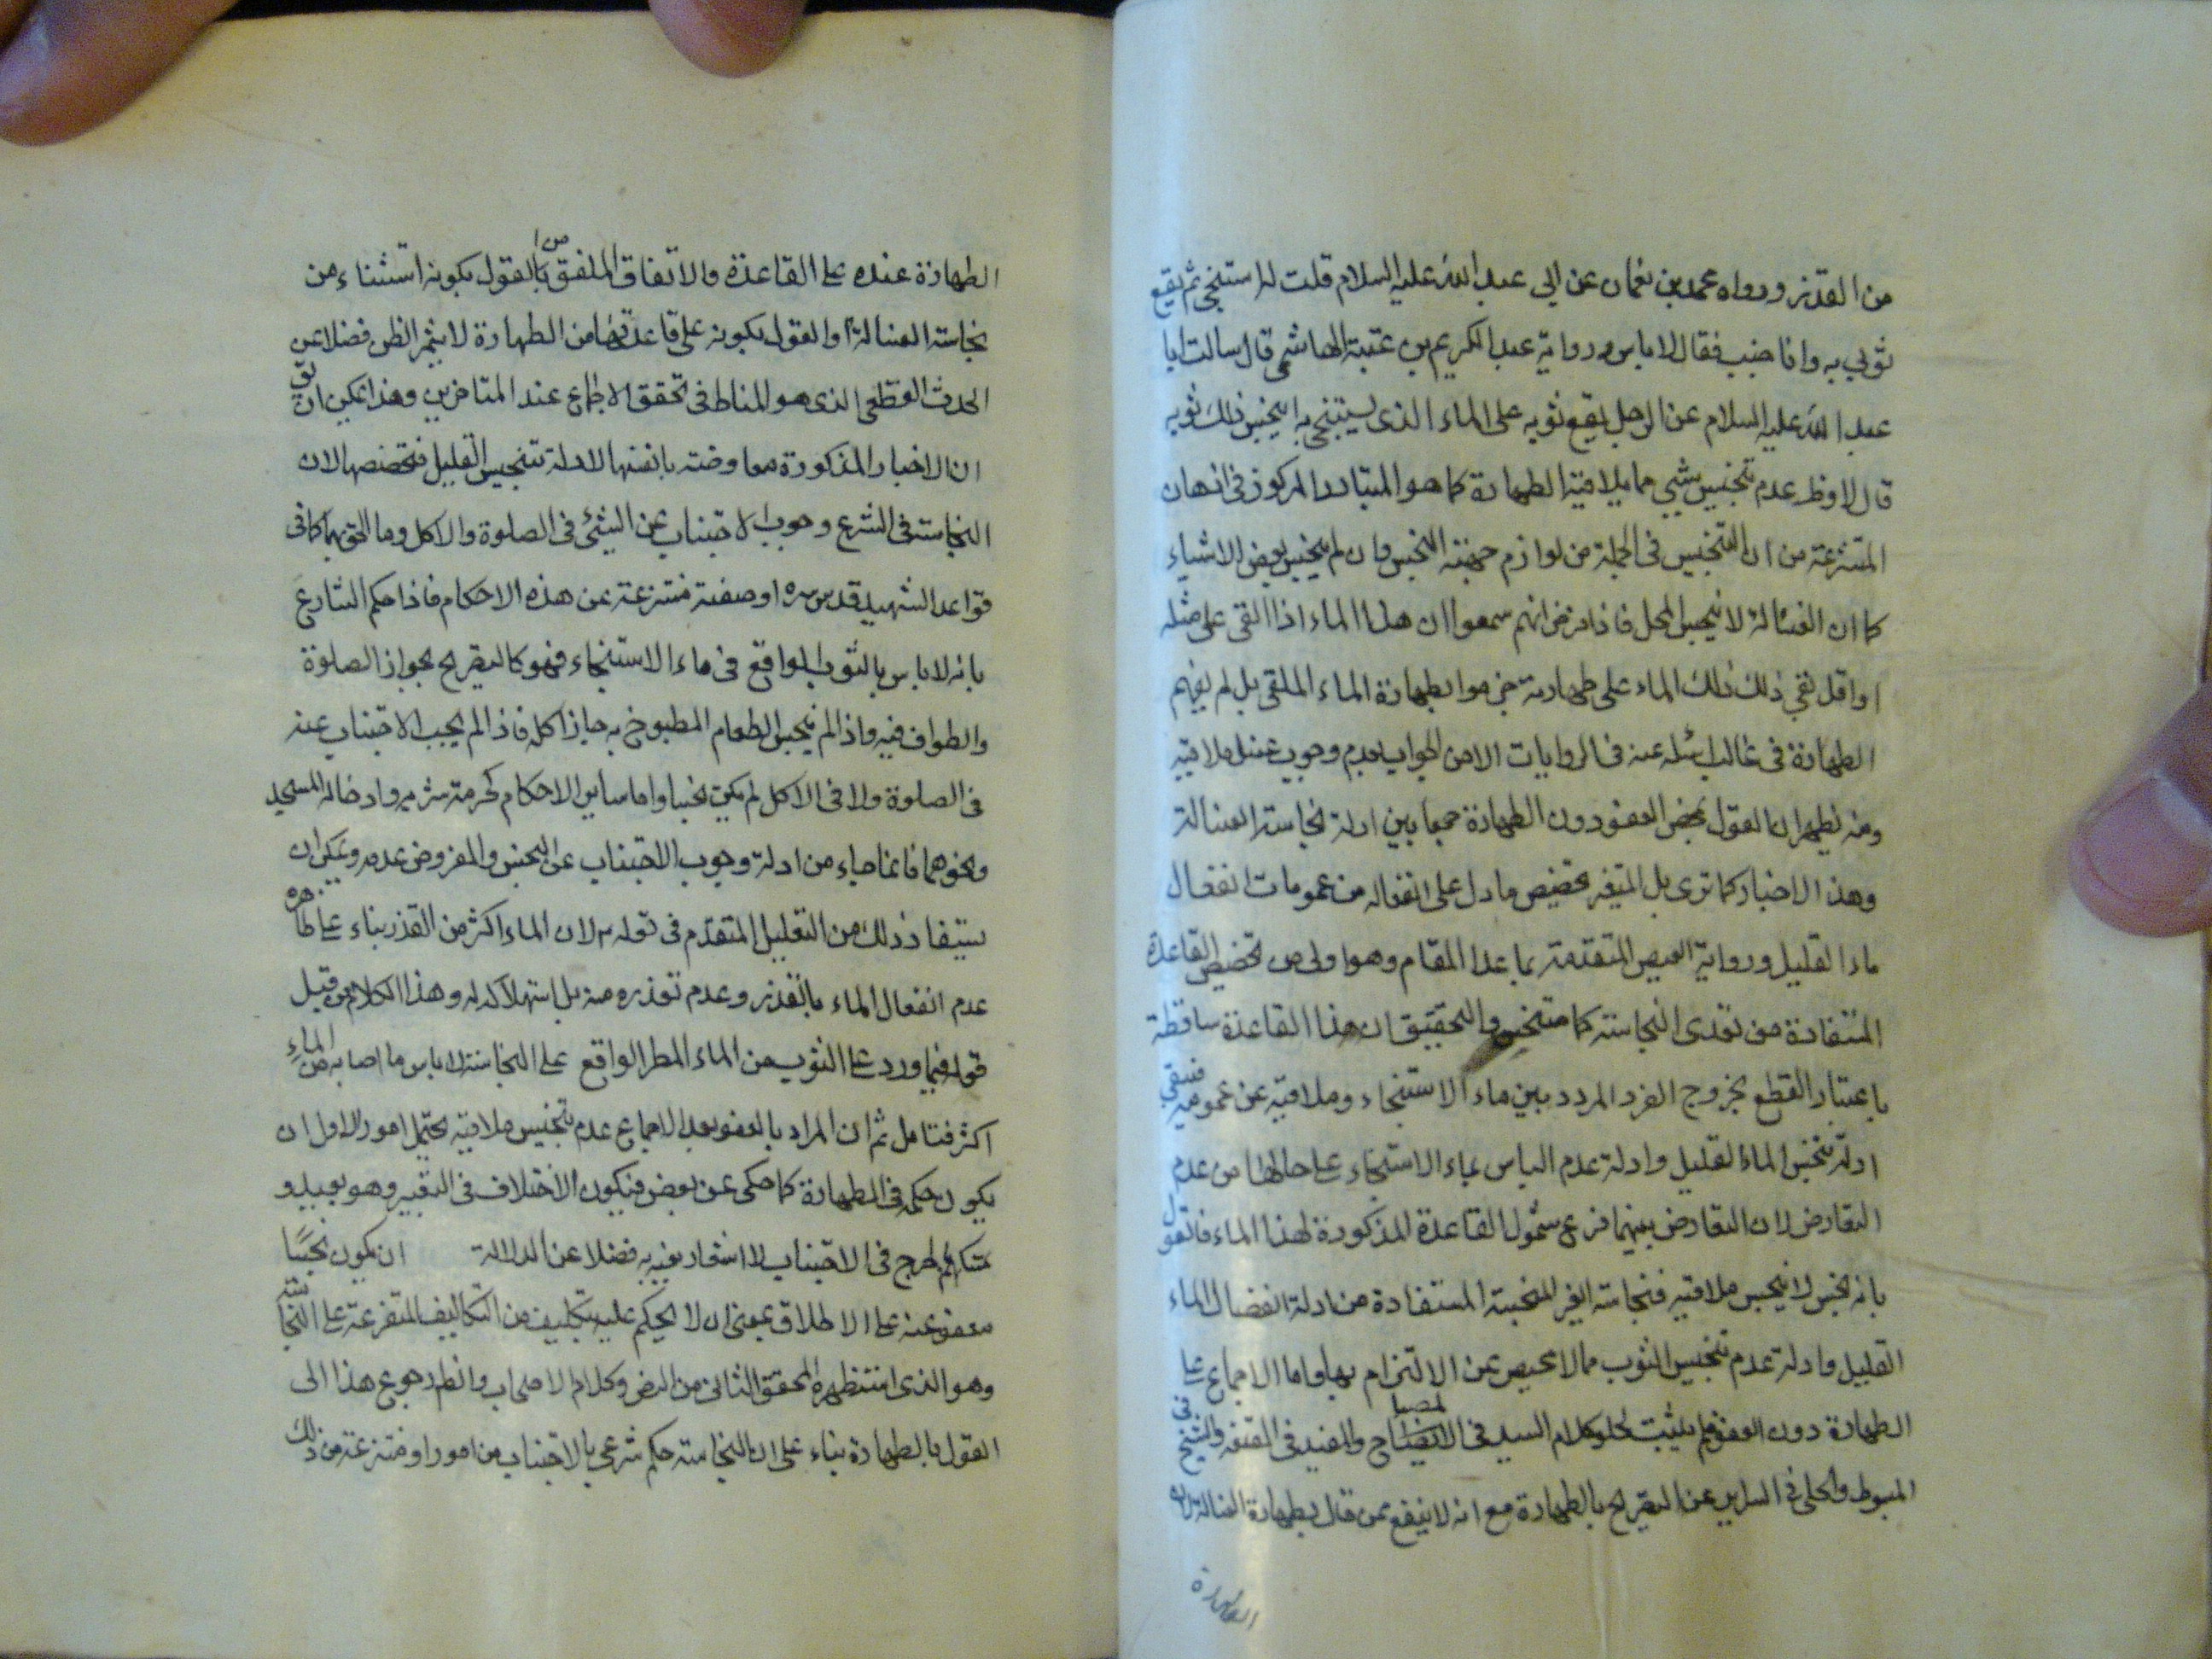 من القذر ورواه محمد بن نعمان عن ابى عبد الله عليه السلام قلت له استنجى ثم يقع
ثوبى به وانا جنب فقال لا باس ورواية عبد الكريم بن عتبة الهاشمى قال سالت ابا
عبد الله عليه السلام عن الرجل يقع ثوبه على الماء الذى يستنجى به اينجس ذلك ثوبه
قال لا وظ عدم تنجيس شىء مما يلاقيه الطهارة كما هو المتبادر المركوز فى اذهان
المتشرعة من ان التنجيس فى الجملة من لوازم النجس وان لم ينجس بعض الاشياء
كما ان الغسالة لا ينجس المحل فاذا فرض انهم سمعوا ان هذا الماء اذا القى على مثله
او اقل بقى ذلك الماء على طهارته جزموا بطهارة الماء الملقى بل لم يفهم
الطهارة فى غالب عنه فى الروايات الا من الجواب بعدم وجوب غسل ملاقيه
ومنه يظهر ان القول بمحض العفو دون الطهارة جمعا بين ادلة نجاسة الغسالة
وهذه الاخبار كما ترى بل المتيقن تخصيص ما دل على انفعاله من عمومات انفعال
ماء القليل ورواية العيص المتقدمة بما عدا المقام وهو اولى من تخصيص القاعدة
المستفادة من تعدى النجاسة كل متنجس والتحقيق ان هذا القاعدة ساقطة
باعتبار القطع بخروج الفرد المردد بين ماء الاستنجاء وملاقيه عن عمومه فتبقى
ادلة تنجس الماء القليل وادلة عدم الباس بماء الاستنجاء على حالها من عدم
التعارض لان التعارض بينهما فرع شمول القاعدة المذكورة لهذا الماء فالقول
بانه نجس لا ينجس ملاقيه فنجاسته الغير المنجسة المستفادة من ادلة انفعال الماء
القليل وادلة عدم تنجيس الثوب مما لا محيص عن الالتزام بها واما الاجماع على
الطهارة دون العفو فلم يثبت لخلو كلام السيد فى المصباح والمفيد فى المقنعه والشيخ فى
المبسوط والحلى فى السراير عن التصريح بالطهارة مع انه لا ينفع عمن قال بطهارة الغسالة لان
الطهارة
الطهارة عنده على القاعدة والاتفاق الملفق من القول بكونه استثناء من
نجاسة الغسالة والقول بكونه على قاعدتها من الطهارة لا يثمر الظن فضلا عن
الحدس القطعى الذى هو المناط فى تحقق الاجماع عند المتاخرين وهذا يمكن ان يق
ان الاخبار المذكورة معارضته بانفسها لادلة تنجيس القليل فتخصصها لان
النجاسة فى الشرع وجوب الاجتناب عن الشىء فى الصلوة والاكل وما الحق بهما كما فى
قواعد الشهيد قدس سره او صفة منتزعة عن هذه الاحكام فاذا حكم الشارع
بانه لا باس بالثوب الواقع فى ماء الاستنجاء فهو كالتصريح بجواز الصلوة
والطواف فيه واذا لم ينجس الطعام المطبوخ به جاز اكله فاذا لم يجب الاجتناب عنه
فى الصلوة ولا فى الاكل لم يكن نجسا واما ساير الاحكام كحرمة شربه وادخاله المسجد
ونحوهما فانما جاء من ادلة وجوب الاجتناب عن النجس والمفروض عدمه ويمكن ان
يستفاد ذلك من التعليل المتقدم فى قوله لان الماء اكثر من القذر بناء على ظاهره
عدم انفعال الماء بالقذر وعدم تقذره منه بل استهلاكه له وهذا الكلام من قبيل
قوله فيما ورد على الثوب من الماء المطر الواقع على النجاسة لا باس ما اصابه من الماء
اكثر فتامل ثم ان المراد بالعفو بعد الاجماع عدم تنجيس ملاقيه يحتمل امورا الاول ان
يكون حكمه فى الطهارة كما حكى عن بعض فيكون الاختلاف فى التعبير وهو بعيد و
تمسكهم بالحرج فى الاجتناب لا اشعار فيه به فضلا عن الدلالة ان يكون نجسا
معفوعنه على الاطلاق بمعنى ان لا يحكم عليه بتكليف من التكاليف المتفرعة على النجاسة
وهو الذى استظهره المحقق الثانى من النص وكلام الاصحاب والظ رجوع هذا الى
القول بالطهارة بناء على ان النجاسة حكم شرعى بالاجتناب من امور او منتزعة من ذلك